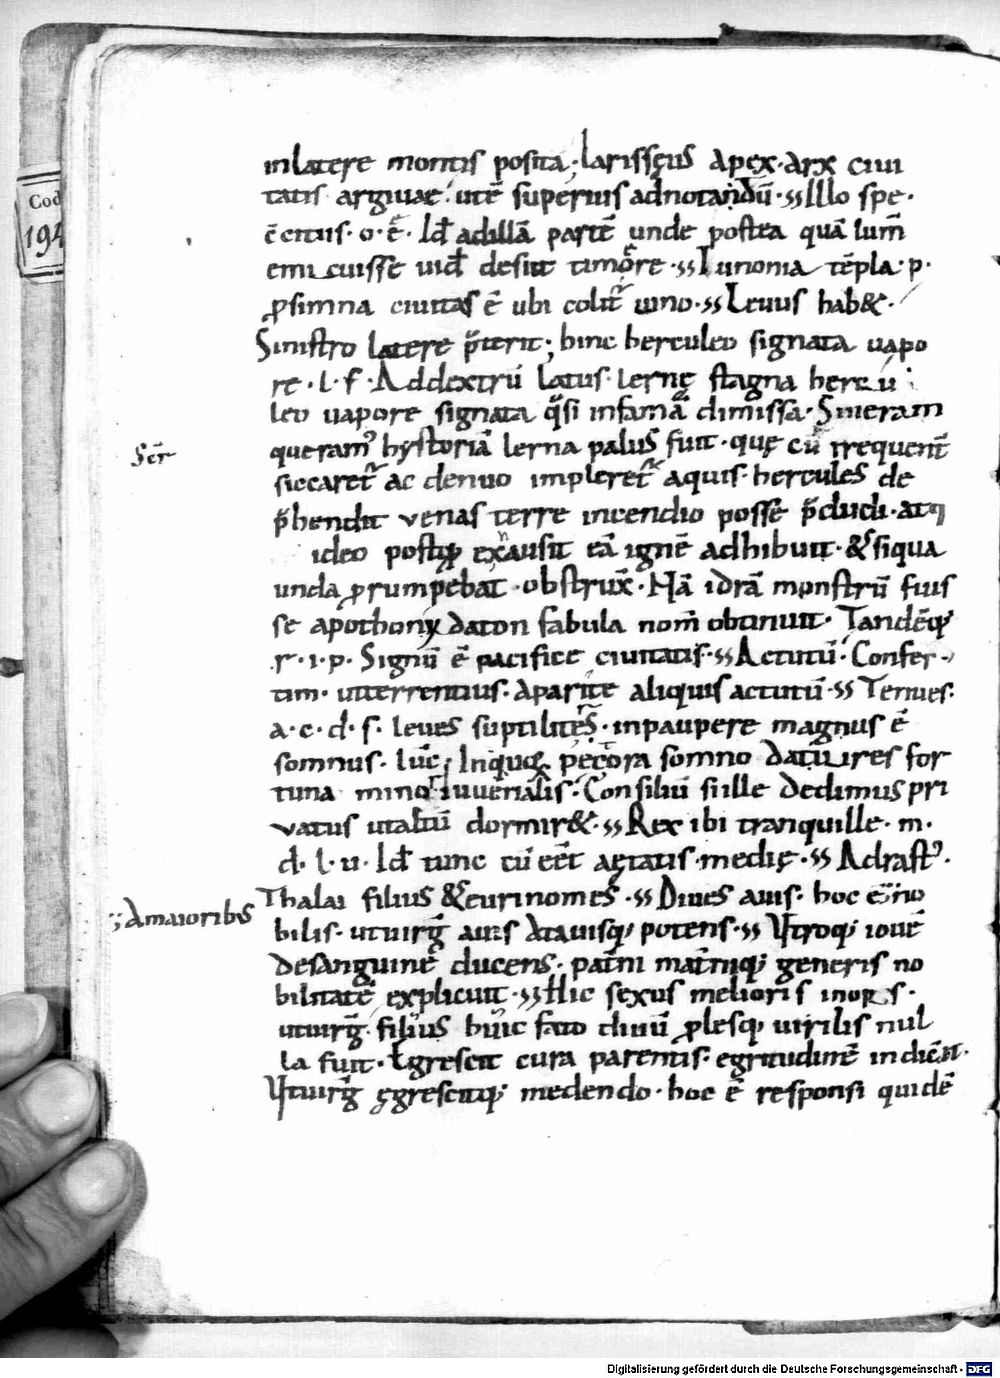 Cod
194
inlatere montis posita; larissęus apex. arx ciui
tatis argiuae. utē superius adnotandū. Illo spe.
ēcitus. o. ē. Id adillā partē unde postea quā lum̄
emicuisse uid desiit timore. Iunonia tēpla. p.
ꝓsimna ciuitas ē ubi colit iuno. Leuus hab&.
Sinistro latere p̄terit; hinc herculeo signata uapo
re. l. f. Addextrū latus lernę stagna hercu
leo uapore signata q̄si infamā dimissa. Sineram
queram hystoriā lerna palus fuit. quę cū
Ser
siccaret ac denuo impleret aquis. hercules de
p̄hendit venas terre incendio posse p̄cludi. atq;
ideo postq̄ exhausit eā ignē adhibuit. & siqua
unda ꝓrumpebat. obstrux̄. Nā idrā monstrū fuis
se fabula nom̄ obtinuit. Tandēq;
r. i. p. Signū ē pacifice ciuitatis. Actutū. Confer
tim. ut terrentius. aparite aliquis actutū. Tenues.
a. c. d. s. leues suptilites. inpaupere magnus ē
somnus. luc̄; Inquoꝝ pectora somno datur ires for
tuna minor iuuenalis. Consiliū sille dedimus pri
vatus utaltū dormir&. Rex ibi tranquille. m.
d. l. u. Id tunc cū eēt aętatis medię. Adrast᾿.
Thalai filius & eurinomes. Diues auis. hoc ē no
;Amaioribus
bilis. utuirḡ auis atauisq; potens. Vtroq; iouē
desanguinē ducens. patn̄i mat̄niq; generis no
bilitatē explicuit. Hic sexus melioris inops.
utuirḡ. filius huic fato diuū ꝓlesq; uirilis nul
la fuit. Egrescit cura parentis. egritudinē
Vtuirḡ ęgrescitq; medendo. hoc ē responsi quidē
Digitalisierung gefördert durch die Deutsche Forschungsgemeinschaft - DFG